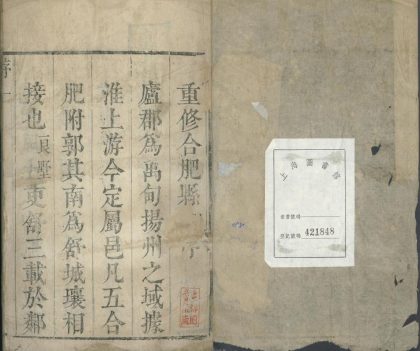 重修合肥縣 序
廬郡爲禹甸揚州之域據
淮上游今定屬邑凡五合
肥附郭其南爲舒城壤相
接也 垠墅 更舒三載於鄰
上海圖書館
索書號碼
登記號碼 421848